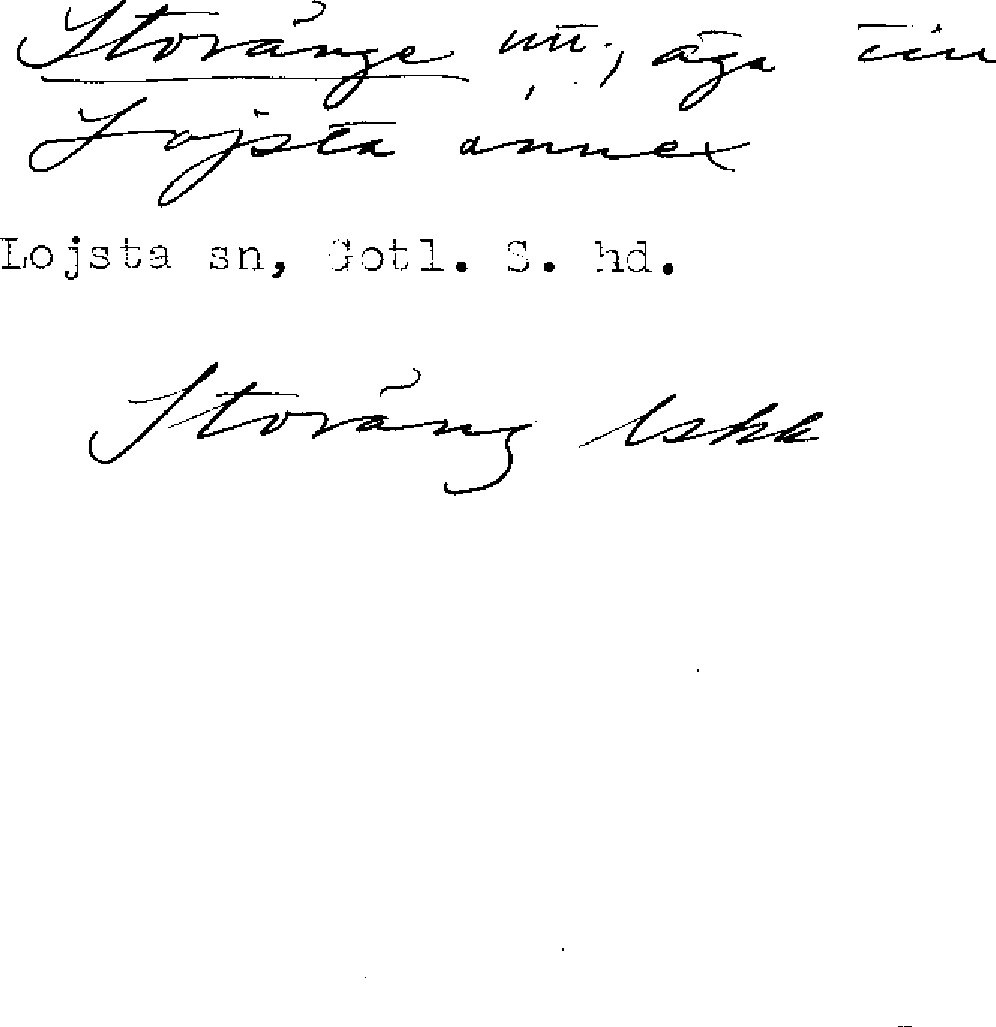 Storänge , äga till
Lojsta annex
Lojsta sn, Gotl. S. hd.
Storäng